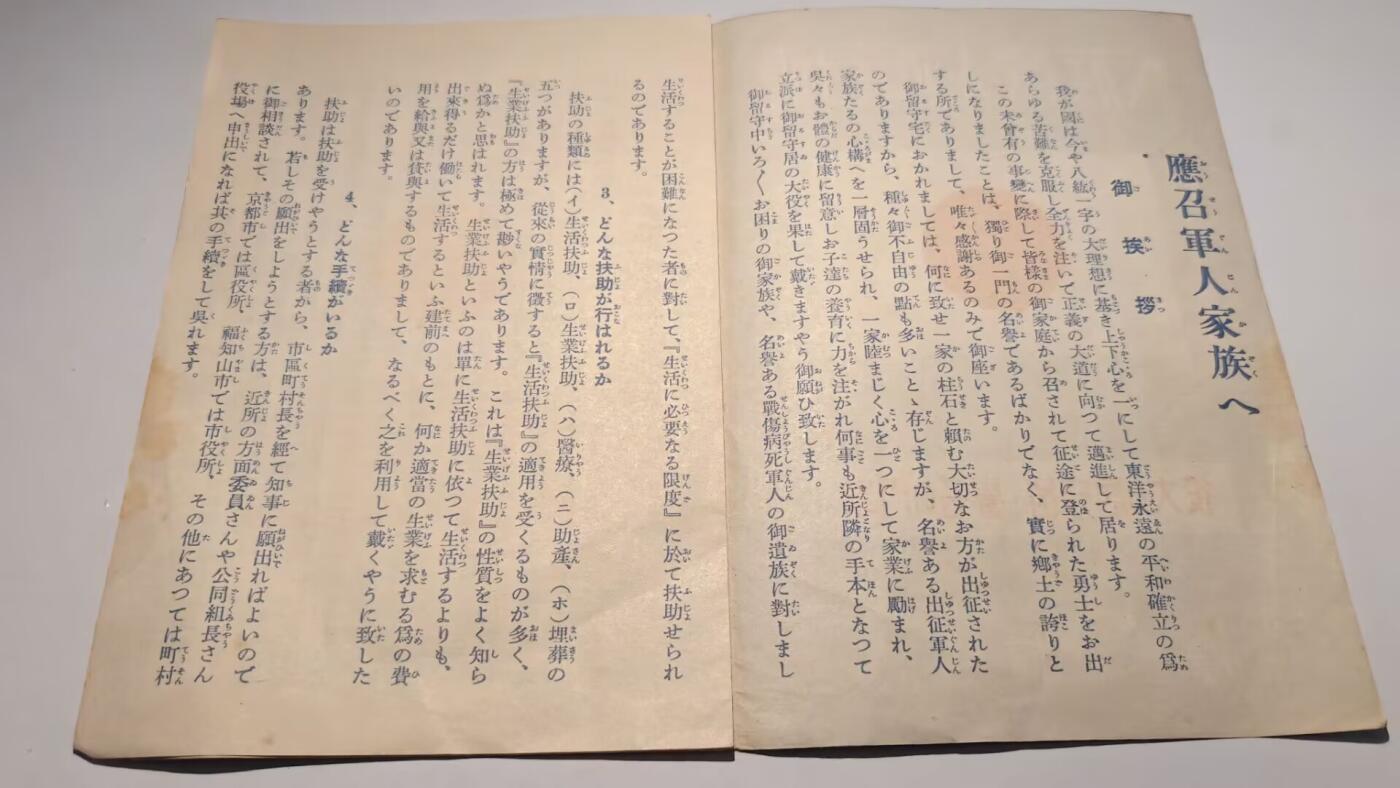 應召軍人家族へ
御挨拶
我が國は今や八紘一宇の大理想に基き上下心を一にして東洋永遠の平和確立の爲
あらゆる苦難を克服し全力を注いで正義の大道に向つて邁進して居ります。
この未曾有の事變に際して皆樣の御家庭から召されて征途に登られた勇士をお出
しになりましたことは、獨り御一門の名譽であるばかりでなく、實に鄕土の誇りと
する所でありまして、唯々感謝あるのみで御座います。
御留守宅におかれましては、何に致せ一家の柱石と賴む大切なお方が出征された
のでありますから、種々御不自由の點も多いことゝ存じますが、名譽ある出征軍人
家族たるの心構へを一層固うせられ、一家睦まじく心を一つにして家業に勵まれ、
吳々もお體の健康に留意しお子達の養育に力を注がれ何事も近所隣の手本となつて
立派に御留守居の大役を果して戴きますやう御願ひ致します。
御留守中いろ〱お困りの御家族や、名譽ある戰傷病死軍人の御遺族に對しまし
生活することが困難になつた者に對して、『生活に必要なる限度』に於て扶助せられ
るのであります。
3、どんな扶助が行はれるか
扶助の種類には（イ）生活扶助、（ロ）生業扶助、（ハ）醫療、（ニ）助產、（ホ）埋葬の
五つがありますが、從來の實情に徵すると『生活扶助』の適用を受くるものが多く、
『生業扶助』の方は極めて尠いやうであります。これは『生業扶助』の性質をよく知ら
ぬ爲かと思はれます。生業扶助といふのは單に生活扶助に依つて生活するよりも、
出來得るだけ働いて生活するといふ建前のもとに、何か適當の生業を求むる爲の費
用を給與又は貸與するものでありまして、なるべく之を利用して戴くやうに致した
いのであります。
4、どんな手續がいるか
扶助は扶助を受けやうとする者から、市區町村長を經て知事に願出ればよいので
あります。若しその願出をしようとする方は、近所の方面委員さんや公同組長さん
に御相談されて、京都市では區役所、福知山市では市役所、その他にあつては町村
役場へ申出になれば其の手續をして吳れます。